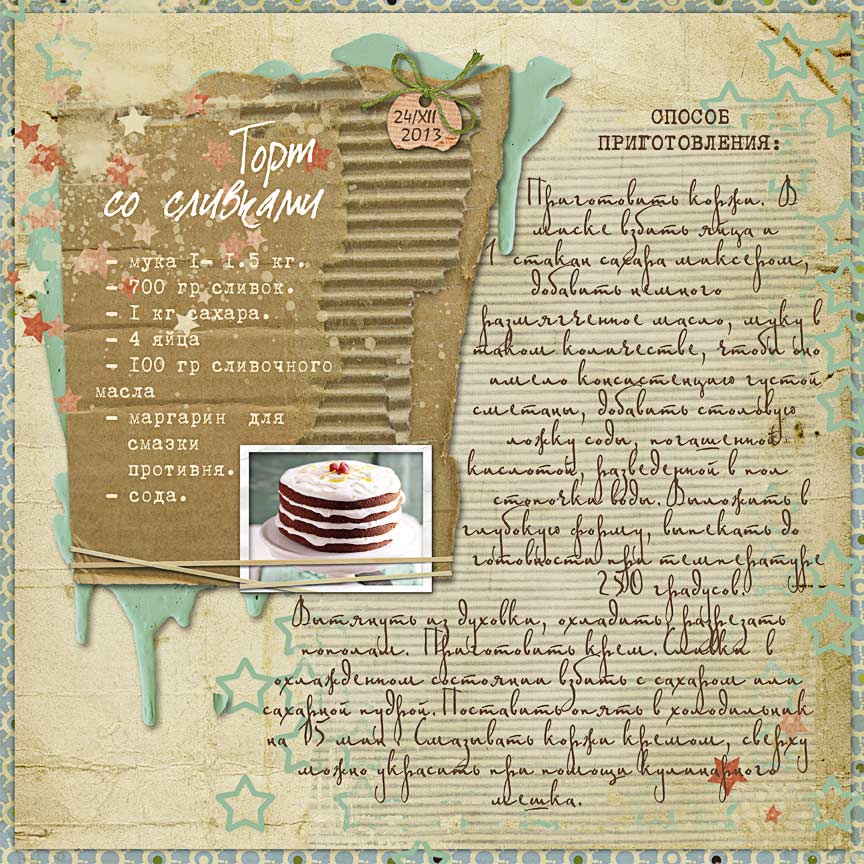 24/XII
2013
Торт
со сливками
- мука 1- 1.5 кг.
- 700 гр сливок.
- 1 кг сахара.
- 4 яйца
- 100 гр сливочного
масла
- маргарин для
смазки
противня.
- сода.
СПОСОБ
ПРИГОТОВЛЕНИЯ:
Приготовить коржи. В
миске взбить яйца и
1 стакан сахара миксером,
добавить немного
размягченное масло, муку в
таком количестве, чтобы оно
имело консистенцию густой
сметаны, добавить столовую
ложку соды, погашенной
кислотой, разведенной в пол
стопочки воды. Выложить в
глубокую форму, выпекать до
готовности при температуре
250 градусов.
Вытянуть из духовки, охладить, разрезать
пополам. Приготовить крем. Сливки в
охлажденном состоянии взбить с сахаром или
сахарной пудрой. Поставить опять в холодильник
на 15 мин. Смазывать коржи кремом, сверху
можно украсить при помощи кулинарного
мешка.